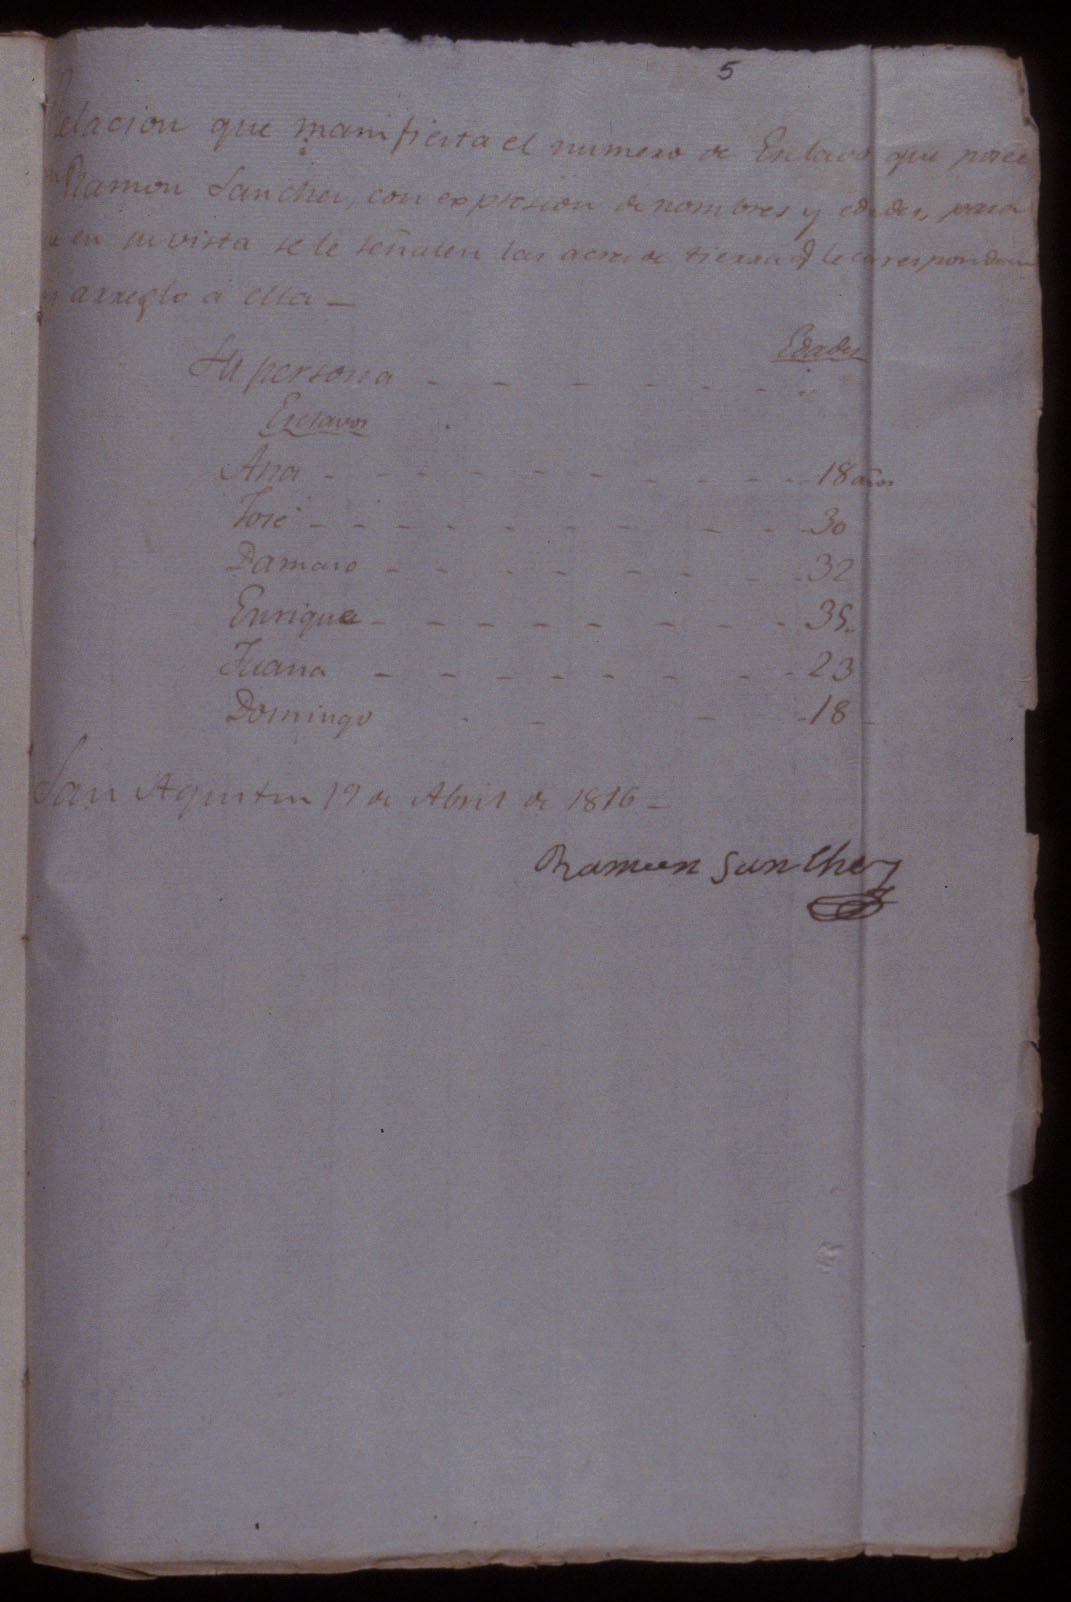 5
Relacion que manifiesta el numero de Esclavos que posee
Ramon Sanchez, con expresion de nombres y edades, para
en su vista se le señalen las acres de tierra q̃ le correspondan
arreglo á ella —
Edades
Su persona - - - - - - -
Esclavos
Ana - - - - - - - - - 18 años
José - - - - - - - - - 30
Damaso - - - - - - - - 32
Enrique - - - - - - - - 35
Juana - - - - - - - - 23
Domingo - - - - 18
San Agustin 19 de Abril de 1816 —
Ramon Sanchez